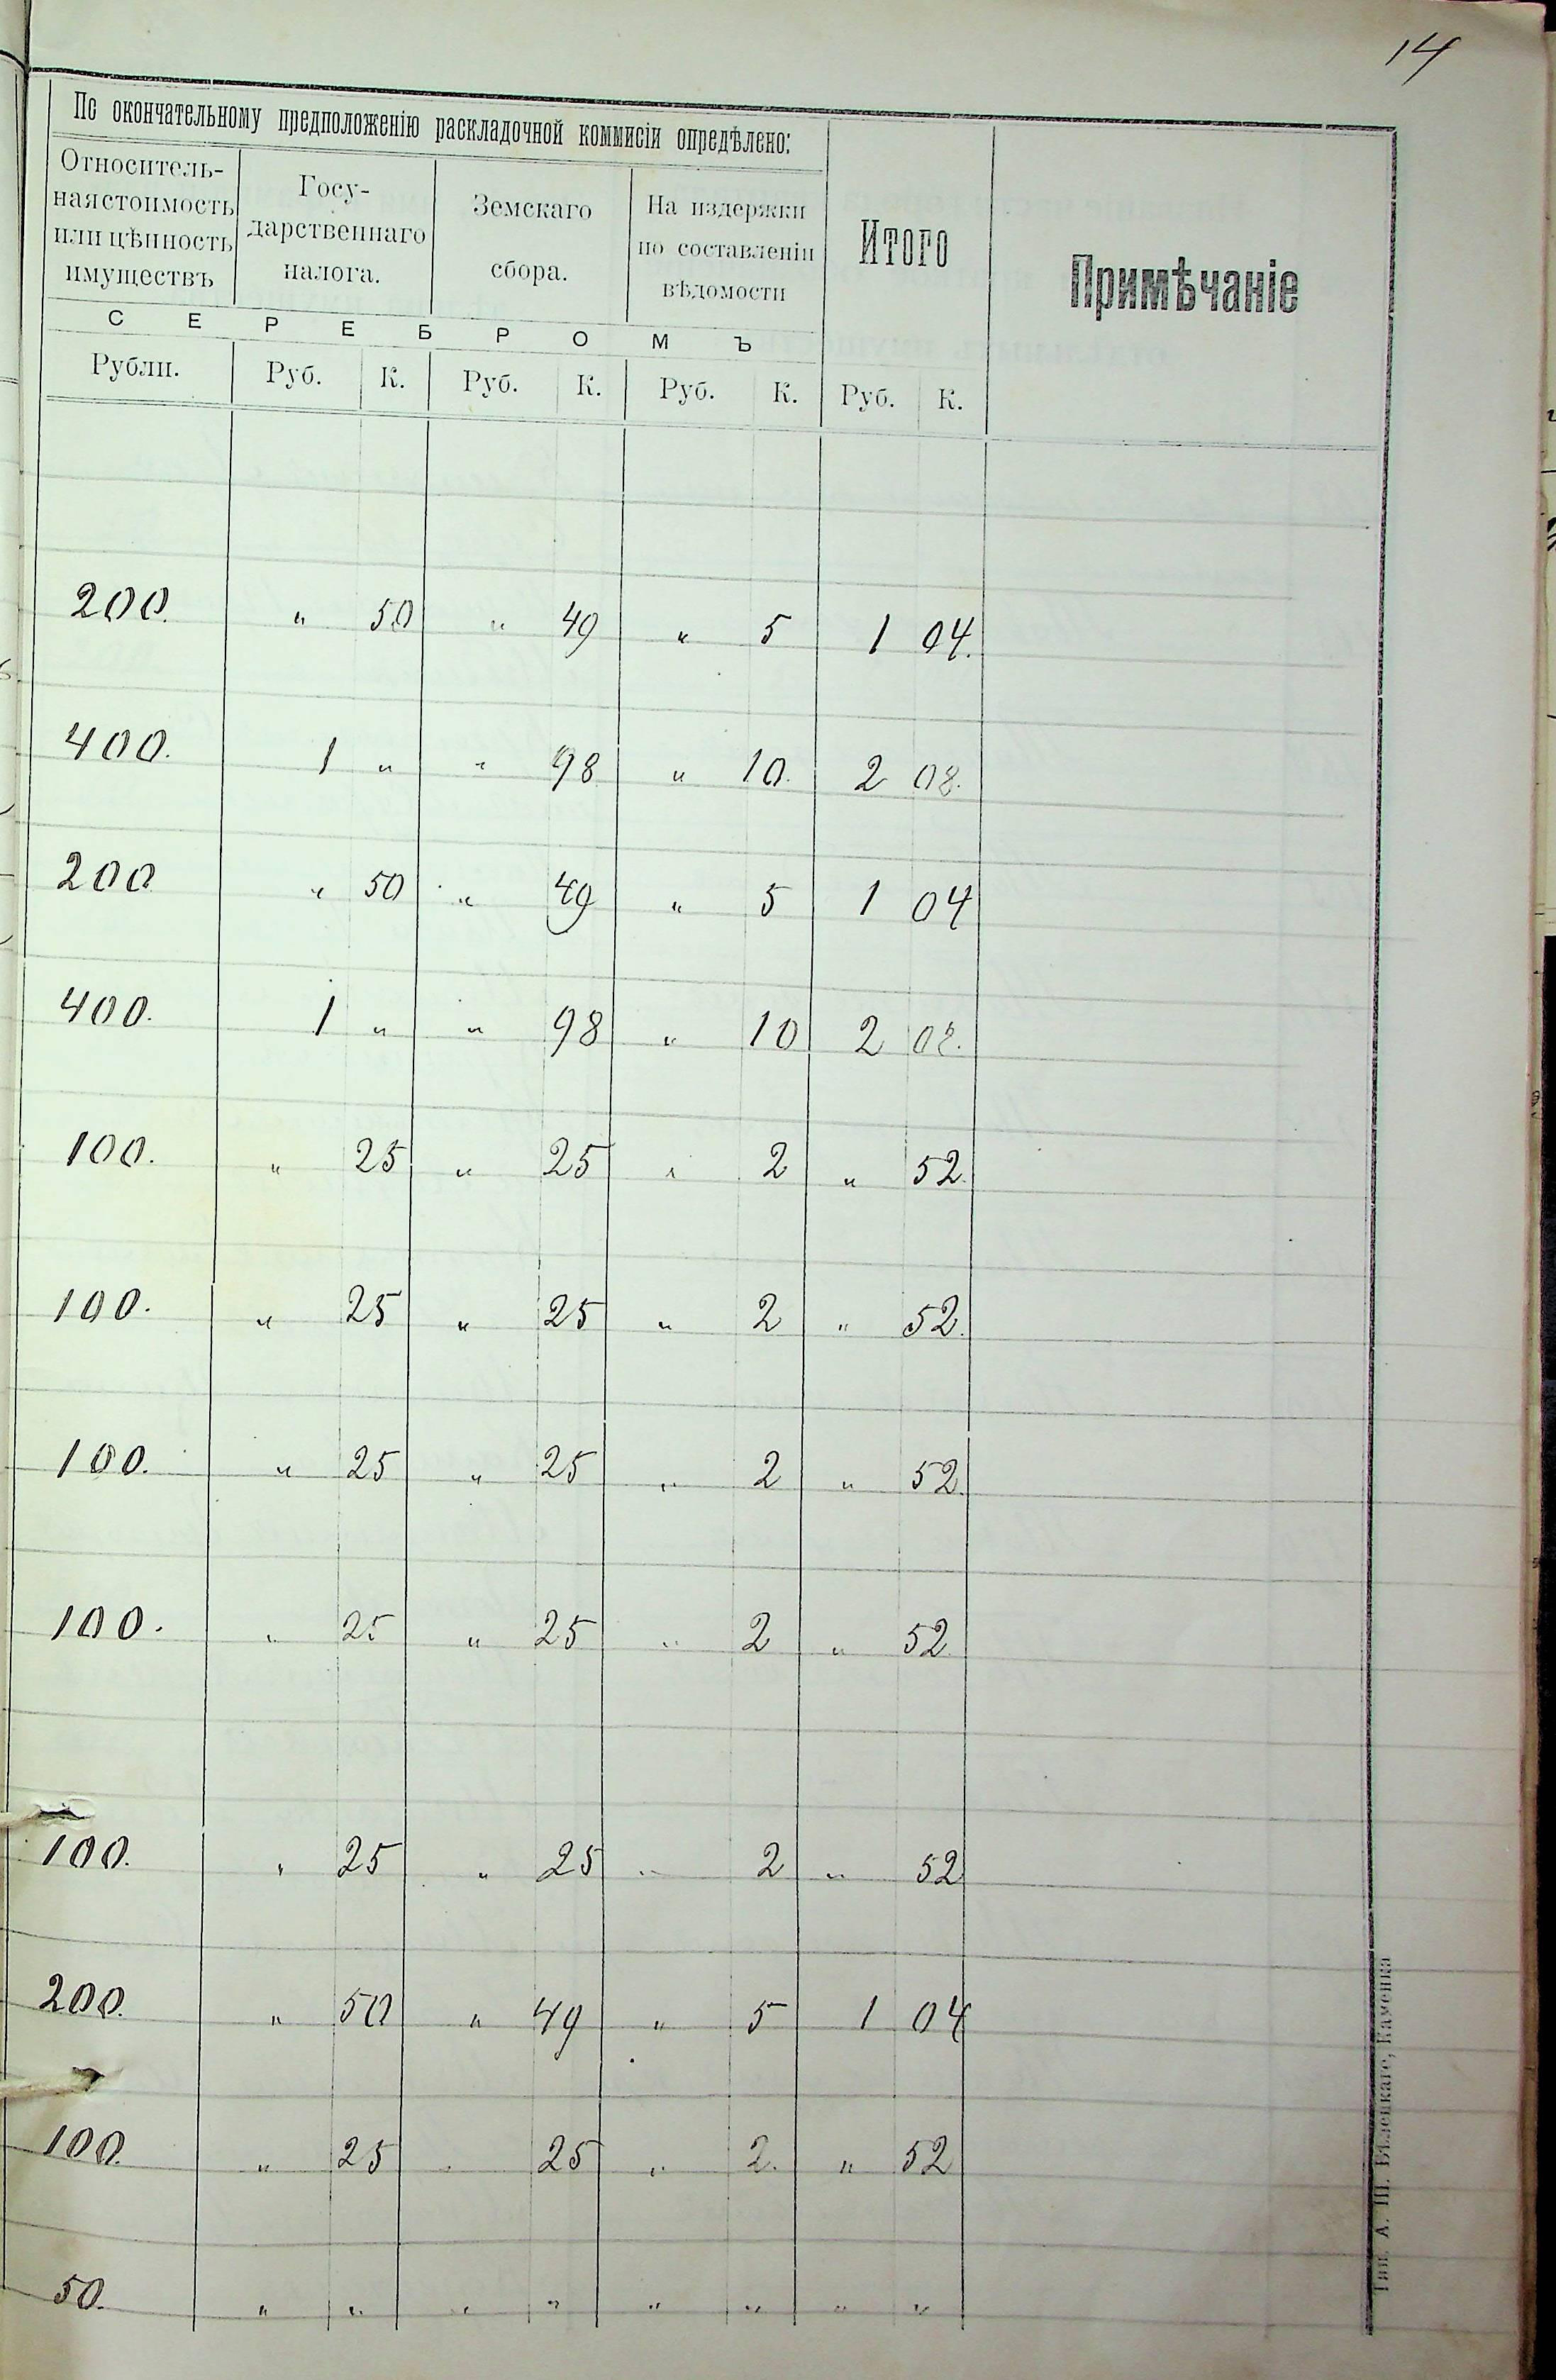 14
По окончательному предположенію раскладочной коммисіи опредѣлено:
Относитель-
ная стоимость
или цѣнность
имуществъ
Госу-
дарственнаго
налога.
Земскаго
сбора.
На издержки
по составленіи
вѣдомости
Итого
Примѣчаніе
С Е Р Е Б Р О М Ъ
Рубли. Руб. К. Руб. К. Руб. К. Руб. К.
200. " 50 " 49 " 5 1 04.
400. 1 " " 98 " 10. 2 08.
200 " 50 " 49 " 5 1 04
400. 1 " " 98 " 10 2 08.
100. " 25 " 25 " 2 " 52.
100. " 25 " 25 " 2 " 52.
100. " 25 " 25 " 2 " 52.
100. " 25 " 25 " 2 " 52.
100. " 25 " 25 " 2 " 52
200. " 50 " 49 " 5 1 04
100. " 25 " 25 " 2. " 52
50. " " " " " " " "
Тип. А. Ш. Бѣлецкаго, Каменка